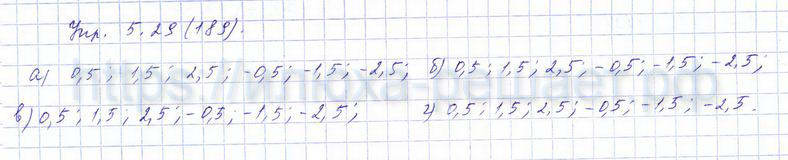 Упр. 5.29 (189).
а) 0,5; 1,5; 2,5; -0,5; -1,5; -2,5; б) 0,5; 1,5; 2,5; -0,5; -1,5; -2,5;
в) 0,5; 1,5; 2,5; -0,5; -1,5; -2,5; г) 0,5; 1,5; 2,5; -0,5; -1,5; -2,5.